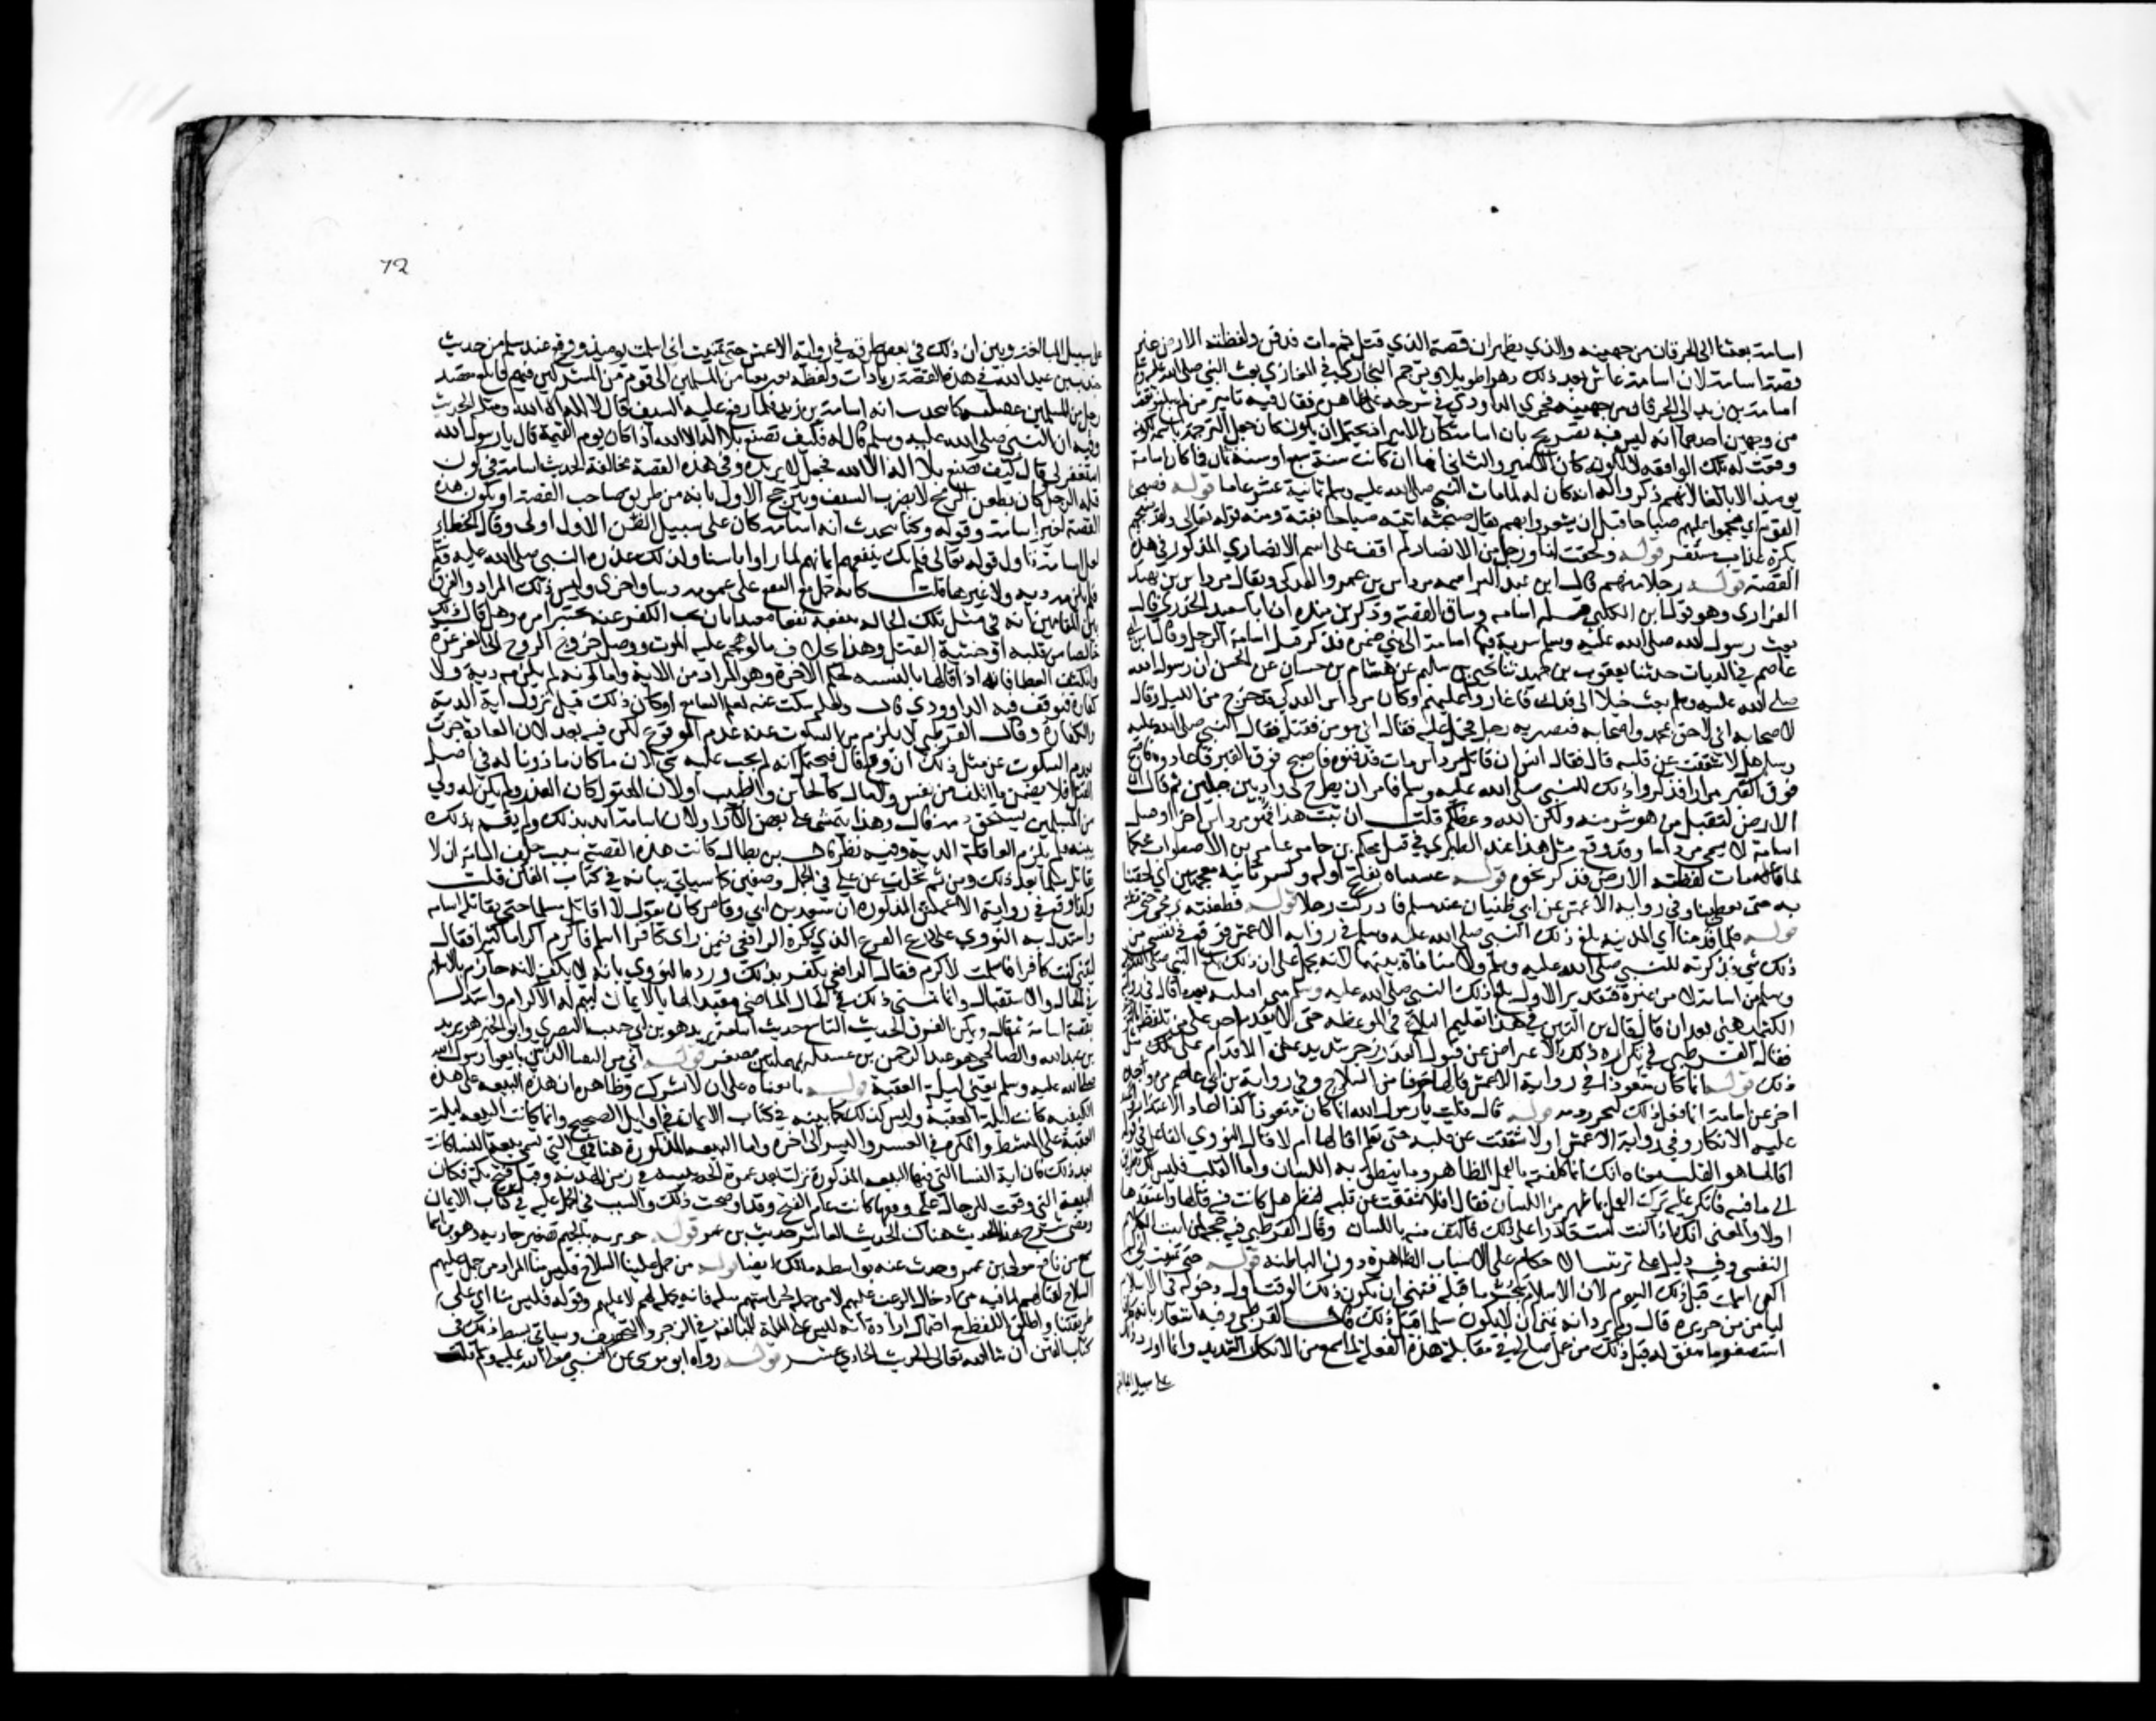 اسامة بعثنا الى الحرقات من جهينه والذي يظهر ان قصة الذي قتل ثم مات فدفن ولفظته الارض غير
قصة اسامة لان اسامة عاش بعد ذلك دهرا طويلا وترجم البخاري في المغازي بعث النبي صلى الله عليه وسلم
اسامة بن زيد الى الحرقات من جهينة فجرى الداودي في شرحه على ظاهره فقال فيه تامير من لم يبلغ وتعقب
من وجهين احدهما انه ليس فيه تصريح بان اسامة كان الامير اذ يحتمل ان يكون جعل الترجمة باسمه لكونه
وقعت له تلك الواقعة لا لكونه كان الامير والثاني انها ان كانت سنة سبع او سنة ثمان فما كان اسامة
يوميذ الا بالغا لانهم ذكروا انه كان له لما مات النبي صلى الله عليه وسلم ثمانية عشر عاما قوله فصبحنا
القوم اي هجموا عليهم صباحا قبل ان يشعروا بهم يقال صبحته اتيته صباحا بغتة ومنه قوله تعالى ولقد صبحهم
بكرة عذاب مستقر قوله ولحقت انا ورجل من الانصار لم اقف على اسم الانصاري المذكور في هذه
القصة قوله رجلا منهم قال ابن عبد البر اسمه مرداس بن عمرو الفدكي ويقال مرداس بن نهيك
الفزاري وهو قول ابن الكلبي قتله اسامة وساق القصة وذكر بن منده ان ابا سعيد الخدري قال
بعث رسول الله صلى الله عليه وسلم سرية فيها اسامة الى بني ضمرة فذكر قتل اسامة الرجل وقال ابن ابي
عاصم في الديات حدثنا يعقوب بن حميد ثنا يحيى بن سليم عن هشام بن حسان عن الحسن ان رسول الله
صلى الله عليه وسلم بعث خيلا الى فدك فاغاروا عليهم وكان مرداس الفدكي قد خرج من الليل وقال
لاصحابه اني لاحق بمحمد واصحابه فبصر به رجل فحمل عليه فقال اني مومن فقتله فقال النبي صلى الله عليه
وسلم هلا شققت عن قلبه قال فقال انس ان قاتل مرداس مات فدفنوه فاصبح فوق القبر فاعادوه فاصبح
فوق القبر مرارا فذكروا ذلك للنبي صلى الله عليه وسلم فامر ان يطرح في واد بين جبلين ثم قال ان
الارض لتقبل من هو شر منه ولكن الله وعظكم قلت ان ثبت هذا فهو مرداس اخر وقتيل
اسامة لا يسمى مرداسا وقد وقع مثل هذا عند الطبري في قتل محلم بن جثامة عامر بن الاضبط وان محلما
لما مات لفظته الارض فذكر نحوه قوله غشيناه بفتح اوله وكسر ثانيه معجمتين اي لحقنا
به حتى تغطينا وفي رواية الاعمش عن ابي ظبيان عند مسلم فادركت رجلا قوله فطعنته برمحي حتى قتلته
قوله فلما قدمنا اي المدينة بلغ ذلك النبي صلى الله عليه وسلم في رواية الاعمش فوقع في نفسي من
ذلك شي فذكرته للنبي صلى الله عليه وسلم ولا منافاة بينهما لانه يحمل على ان ذلك بلغ النبي صلى الله عليه
وسلم من اسامة لا من غيره
الكثير هي بعد ان قال بن التين في هذا اللوم تعليم وابلاغ في الموعظة حتى لا يقدم احد على من تلفظ
فقال القرطبي في تكراره ذلك الاعراض عن قبول العذر زجر شديد على الاقدام على مثل
ذلك قوله انما كان متعوذا في رواية الاعمش قالها خوفا من السلاح وفي رواية بن ابي عاصم من وجه
اخر عن اسامة انما فعل ذلك ليحرز دمه قوله قال قلت يا رسول الله انما كان متعوذا كذا اعاد الاعتذار
عليه الانكار وفي رواية الاعمش افلا شققت عن قلبه حتى تعلم اقالها ام لا قال النووي الفاعل في قوله
اقالها هو القلب ومعناه انك انما كلفت بالعمل الظاهر وما ينطق به اللسان واما القلب فليس لك طريق
الى ما فيه فانكر عليه ترك العمل بما ظهر من اللسان فقال افلا شققت عن قلبه لتنظر هل كانت فيه قالها واعتقدها
او لا والمعنى انك اذا كنت لست قادرا على ذلك فاكتف منه باللسان وقال القرطبي فيه حجة لمن اثبت الكلام
النفسي وفيه دليل على ترتيب الاحكام على الاسباب الظاهرة دون الباطنة قوله حتى تمنيت اني لم
اكن اسلمت قبل ذلك اليوم لان الاسلام يجب ما قبله فتمنى ان يكون ذلك الوقت اول دخوله في الاسلام
ليامن من جريرة قال ولم يرد انه تمنى ان لا يكون مسلما قبل ذلك قال القرطبي وفيه اشعار بانه كان
استصغر ما سبق له قبل ذلك من عمل صالح في مقابلة هذه الفعلة لما سمع من الانكار الشديد وانما اورد ذلك
على سبيل المبالغة
72
على سبيل المبالغة وبين ان ذلك في بعض طرقه في رواية الاعمش حتى تمنيت اني اسلمت يوميذ ووقع عند مسلم من حديث
جندب بن عبد الله في هذه القصة زيادات ولفظه بعث بعثا من المسلمين الى قوم من المشركين
رجل من المسلمين غفلته كنا نحدث انه اسامة بن زيد فلما رفع عليه السيف قال لا اله الا الله فقتله الحديث
وفيه ان النبي صلى الله عليه وسلم قال له فكيف تصنع بلا اله الا الله اذا كان يوم القيمة قال يا رسول الله
استغفر لي قال كيف تصنع بلا اله الا الله فجعل لا يزيده وفي هذه القصة مخالفة لحديث اسامة في كون
قتله الرجل كان بطعن الرمح لا بضرب السيف ويترجح الاول بانه من طريق صاحب القصة او يكون هذه
القصة لغير اسامة وقوله وكنا نحدث انه اسامة كان على سبيل الظن الاول اولى وقال الخطابي
لعل اسامة تاول قوله تعالى فلم يك ينفعهم ايمانهم لما راوا باسنا ولذلك عذره النبي صلى الله عليه وسلم
فلم يلزمه دية ولا غيرها قلت كانه حمل نفي النفع على عمومه دنيا واخرى وليس ذلك المراد والفرق
بين المقامين انه في مثل تلك الحالة ينفعه نفعا مقيدا بان يجب الكف عنه حتى يختبر امره وهل قال ذلك
خالصا من قلبه او خشية القتل وهذا بخلاف ما لو هجم عليه الموت ووصل خروج الروح الى الغرغرة
وانكشف الغطا فانه اذا قالها بالنسبة لحكم الاخرة وهو المراد من الاية واما كونه لم يلزمه دية ولا
كفارة فتوقف فيه الداوودي قال ولعله سكت عنه لعلم السامع او كان ذلك قبل نزول اية الدية
والكفارة وقال القرطبي لا يلزم من السكوت عنه عدم الوقوع لكن فيه بعد لان العادة جرت
بعدم السكوت عن مثل ذلك ان وقع قال فيحتمل انه لم يجب عليه شي لان ما كان ماذونا له في اصل
القتل فلا يضمن ما اتلف من نفس ولا مال كالخاتن والطبيب او لان المقتول كان من العدو ولم يكن له ولي
من المسلمين يستحق ديته قال وهذا يتمشى على بعض الاراء او لان اسامة اقر بذلك ولم يقم بذلك
بينة فلم يلزم العاقلة الدية وفيه نظر قال بن بطال كانت هذه القصة سبب حلف اسامة ان لا
يقاتل مسلما بعد ذلك ومن ثم تخلف عن علي في الجمل وصفين كما سياتي بيانه في كتاب الفتن قلت
وكذا وقع في رواية الاعمش المذكورة ان سعد بن ابي وقاص كان يقول لا اقاتل مسلما حتى يقاتله اسامة
واستدل به النووي على رد الفرع الذي ذكره الرافعي فيمن راى كافرا اسلم فاكرم اكراما كثيرا فقال
ليتني كنت كافرا فاسلمت لاكرم فقال الرافعي يكفر بذلك ورده النووي بانه لا يكفر لانه جازم بالاسلام
في الحال والاستقبال وانما تمنى ذلك في الحال الماضي مقيدا لها بالايمان ليتم له الاكرام واستدل
بقصة اسامة ثم قال ويمكن الفرق الحديث التاسع حديث عبادة يزيد هو بن ابي حبيب المصري وابو الخير هو مرثد
بن عبد الله والصنابحي هو عبد الرحمن بن عسيلة بمهملتين مصغر قوله اني من النقبا الذين بايعوا رسول الله
صلى الله عليه وسلم يعني ليلة العقبة قوله بايعناه على ان لا نشرك وظاهره ان هذه البيعة على هذه
الكيفية كانت ليلة العقبة وليس كذلك كما بينته في كتاب الايمان في اوايل الصحيح وانما كانت البيعة ليلة
العقبة على المنشط والمكره في العسر واليسر الى اخره واما البيعة المذكورة هنا فهي التي تسمى بيعة النسا كانت
بعد ذلك فان اية النسا التي فيها البيعة المذكورة نزلت بعد عمرة الحديبية في زمن الهدنة وقبل فتح مكة فكان
البيعة التي وقعت للرجال على وفقها كانت عام الفتح وقد اوضحت ذلك والسبب في الحمل عليه في كتاب الايمان
ومضى شرح هذا الحديث هناك الحديث العاشر حديث بن عمر قوله جويرية بالجيم تصغير جارية وهو بن اسما
سمع من نافع مولى بن عمر وحدث عنه بواسطة مالك ايضا قوله من حمل علينا السلاح فليس منا المراد من حمل عليهم
السلاح لقتالهم لما فيه من ادخال الرعب عليهم لا من حمله لحراستهم مثلا فانه يحمله لهم لا عليهم وقوله فليس منا اي على
طريقتنا واطلق اللفظ مع احتمال ارادة انه ليس على الملة للمبالغة في الزجر والتخويف وسياتي بسط ذلك في
كتاب الفتن ان شا الله تعالى الحديث الحادي عشر قوله رواه ابو موسى عن النبي صلى الله عليه وسلم قلت